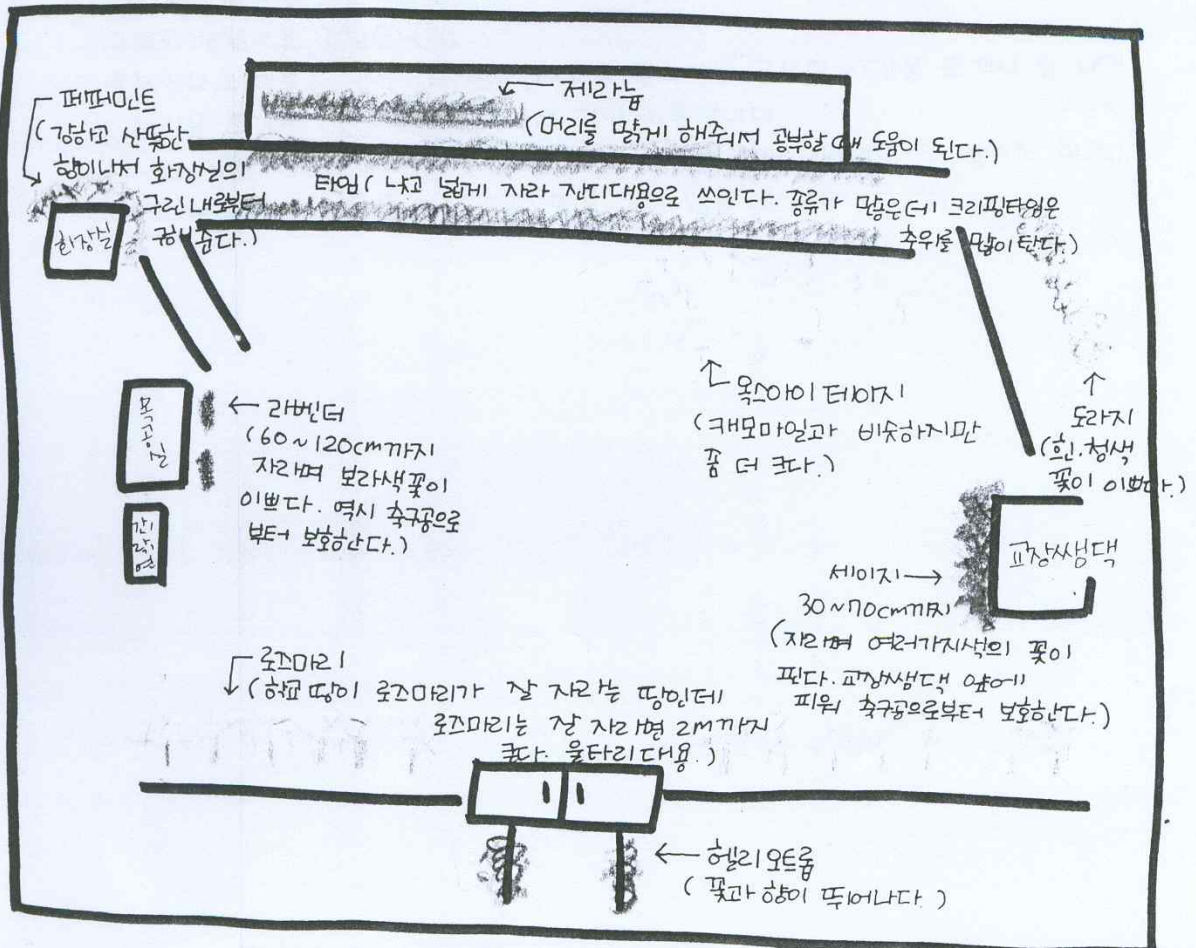 페퍼민트
(강하고 산뜻한
향이나서 화장실의
구린내로부터
구해준다.)
화장실
제라늄
(머리를 맑게 해주어서 공부할 때 도움이 된다.)
타임 (낮고 넓게 자라 잔디대용으로 쓰인다. 종류가 많은데 크리핑타임은
추위를 많이 탄다.)
목공실
라벤더
(60~120cm까지
자라며 보라색꽃이
이쁘다. 역시 축구공으로
부터 보호한다.)
옥스아이 데이지
(캐모마일과 비슷하지만
좀 더 크다.)
도라지
(흰.청색
꽃이 이쁘다.)
교장쌤댁
세이지
30~70cm까지
(자라며 여러가지색의 꽃이
핀다. 교장쌤댁 앞에
피워 축구공으로부터 보호한다.)
로즈마리
(학교 땅이 로즈마리가 잘 자라는 땅인데
로즈마리는 잘 자라면 2m까지
큰다. 울타리대용.)
헬리오트롭
(꽃과 향이 뛰어나다.)